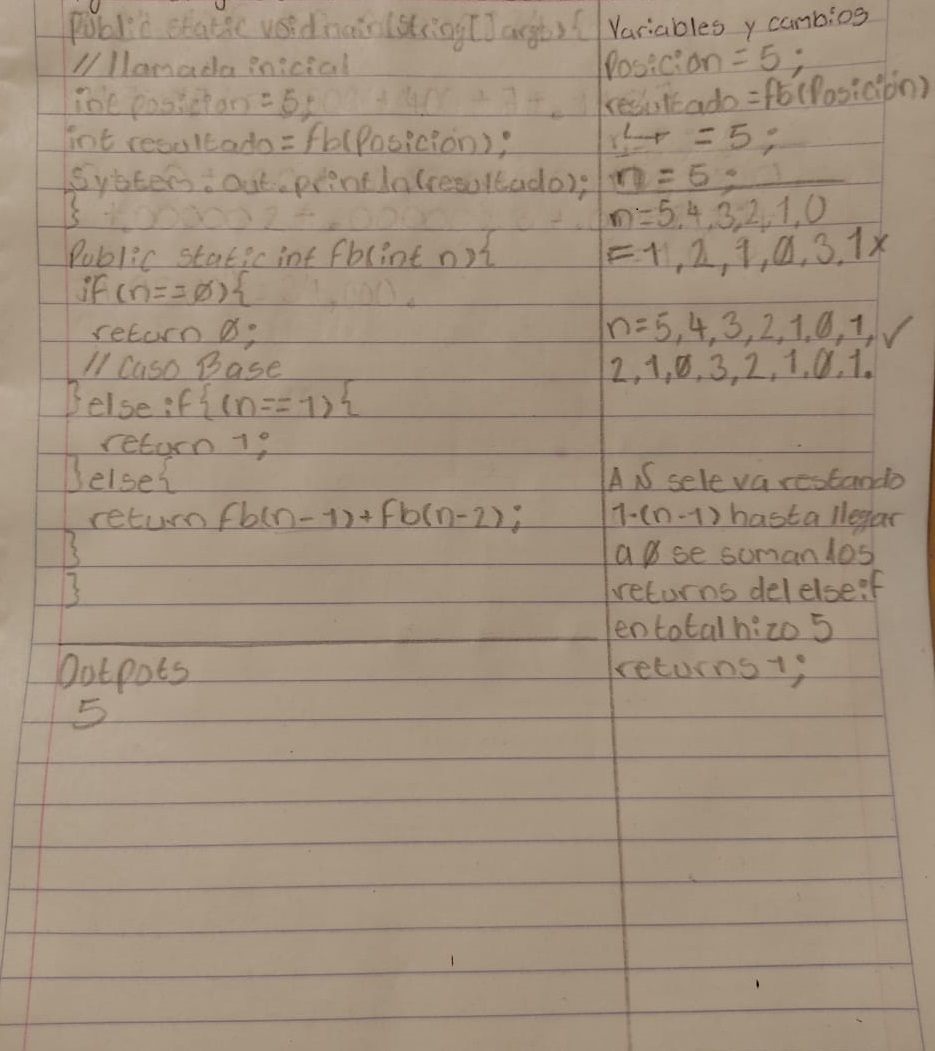 Public static void main(String[] args){
// llamada inicial
int posicion = 5;
int resultado = fb(Posicion);
System.out.println(resultado);
}
Public static int fb(int n){
if(n==0){
return 0;
// Caso Base
}else if{(n==1){
return 1;
}else{
return fb(n-1)+fb(n-2);
}
}
Outputs
5
Variables y cambios
Posicion = 5;
resultado = fb(Posición)
= 5;
n = 5;
n=5,4,3,2,1,0
=1,2,1,0,3,1x
n=5,4,3,2,1,0,1,✓
2,1,0,3,2,1,0,1.
A N se le va restando
1-(n-1) hasta llegar
a 0 se suman los
returns del else if
en total hizo 5
returns 1;